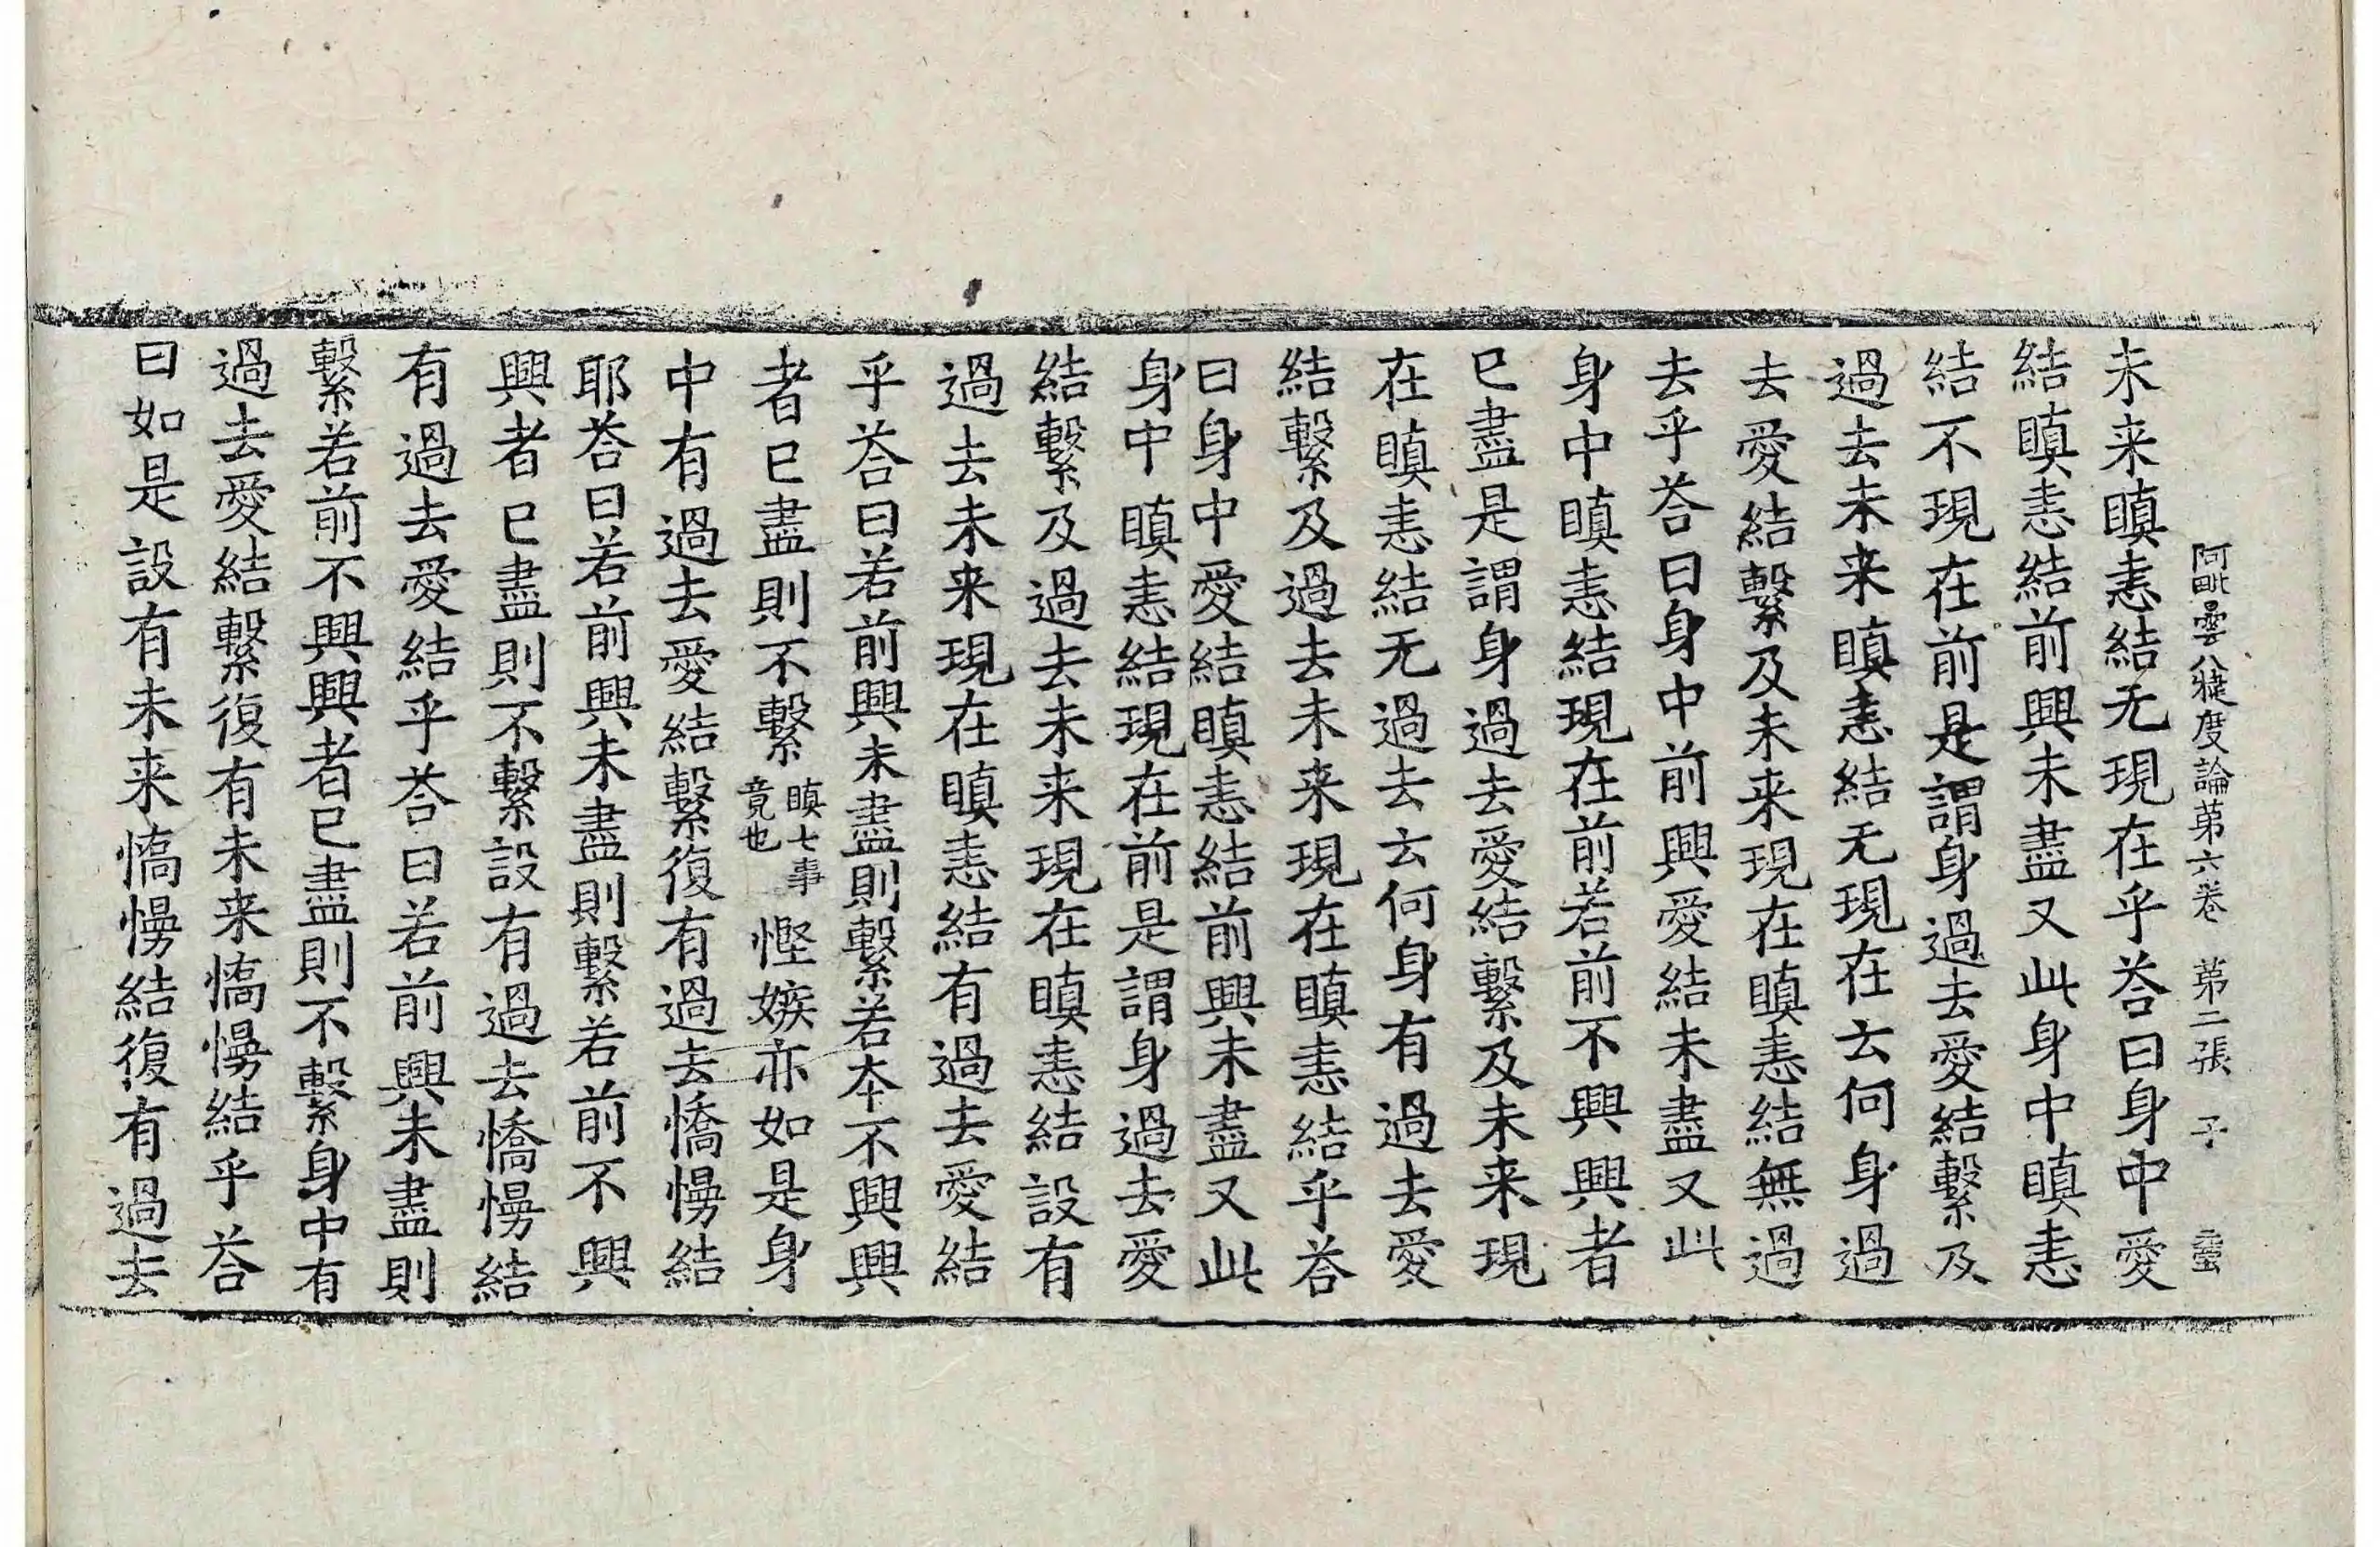 阿毗曇八犍度論第六卷 第二張 子
未来瞋恚結无現在乎荅曰身中愛
結瞋恚結前興未盡又此身中瞋恚
結不現在前是謂身過去愛結繫及
過去未来瞋恚結无現在云何身過
去愛結繫及未来現在瞋恚結無過
去乎荅曰身中前興愛結未盡又此
身中瞋恚結現在前若前不興興者
已盡是謂身過去愛結繫及未来現
在瞋恚結无過去云何身有過去愛
結繫及過去未来現在瞋恚結乎荅
曰身中愛結瞋恚結前興未盡又此
身中瞋恚結現在前是謂身過去愛
結繫及過去未来現在瞋恚結設有
過去未来現在瞋恚結有過去愛結
乎荅曰若前興未盡則繫若本不興興
者已盡則不繫瞋七事竟也慳嫉亦如是身
中有過去愛結繫復有過去憍慢結
耶荅曰若前興未盡則繫若前不興
興者已盡則不繫設有過去憍慢結
有過去愛結乎荅曰若前興未盡則
繫若前不興興者已盡則不繫身中有
過去愛結繫復有未来憍慢結乎荅
曰如是設有未来憍慢結復有過去